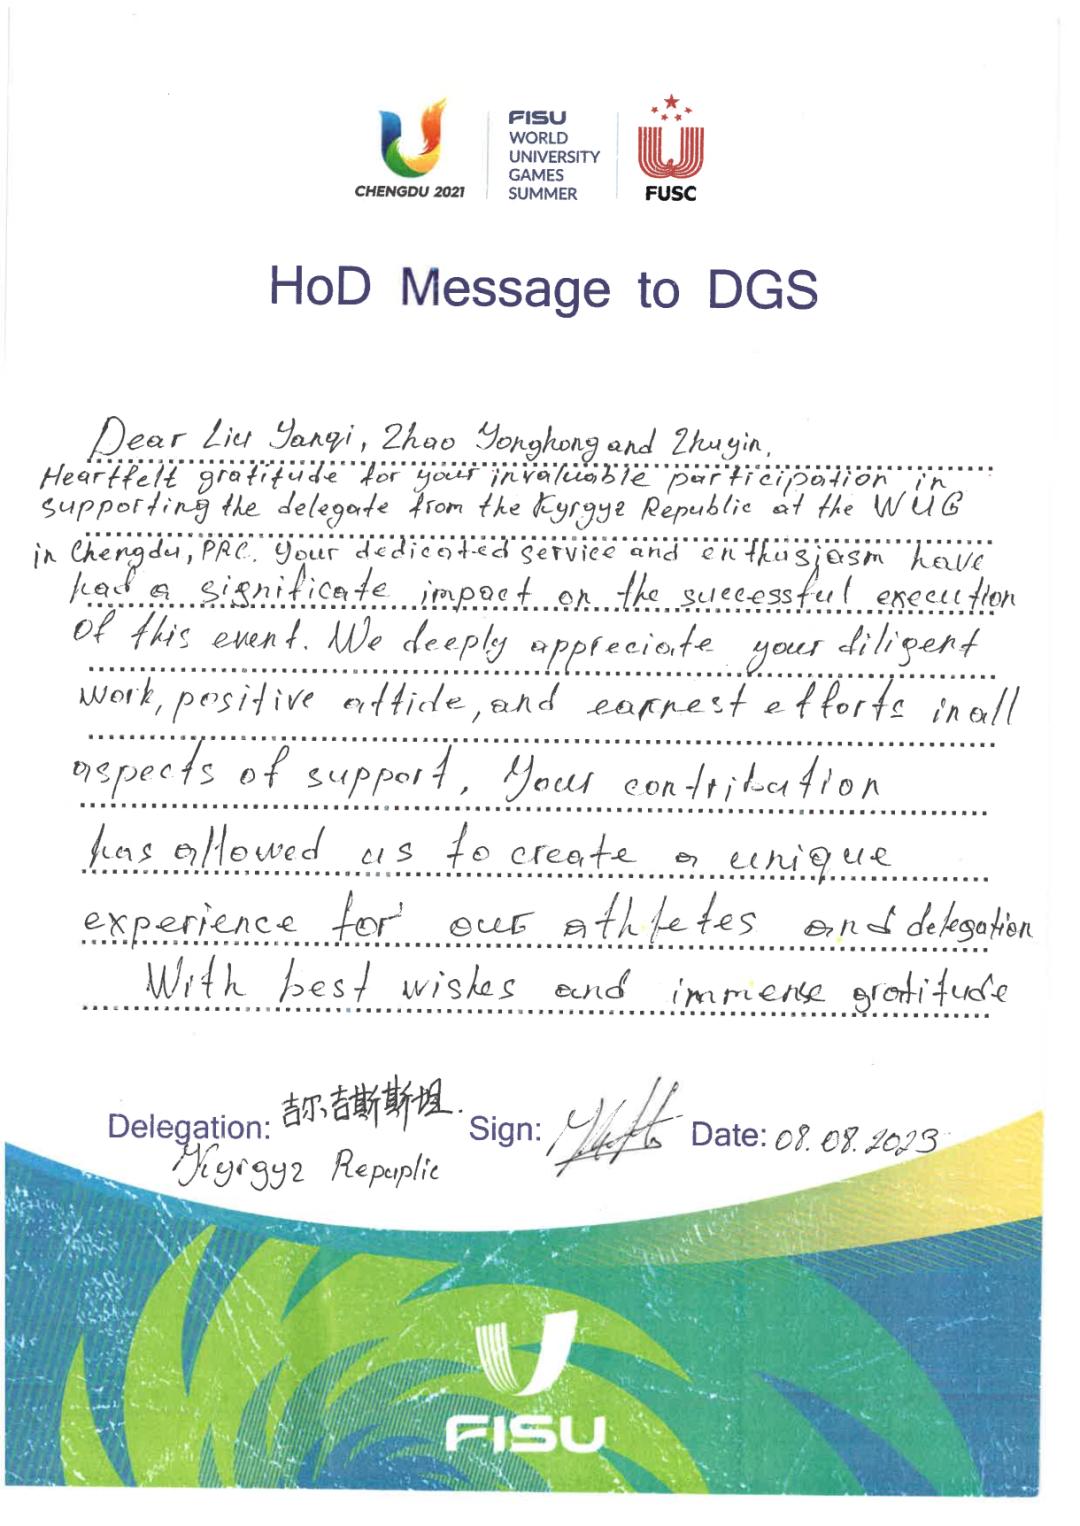 CHENGDU 2021
FISU
WORLD
UNIVERSITY
GAMES
SUMMER
FUSC
HoD Message to DGS
Dear Liu Yanqi, Zhao Yonghong and Zhuyin,
Heartfelt gratitude for your invaluable participation in
supporting the delegate from the Kyrgyz Republic at the WUG
in Chengdu, PRC. Your dedicated service and enthusiasm have
had a significate impact on the successful execution
of this event. We deeply appreciate your diligent
work, positive attide, and earnest efforts in all
aspects of support. Your contribution
has allowed us to create a unique
experience for our athletes and delegation
With best wishes and immense gratitude
Delegation: 吉尔吉斯斯坦. Sign: Date: 08.08.2023
Kyrgyz Repuplic
FISU